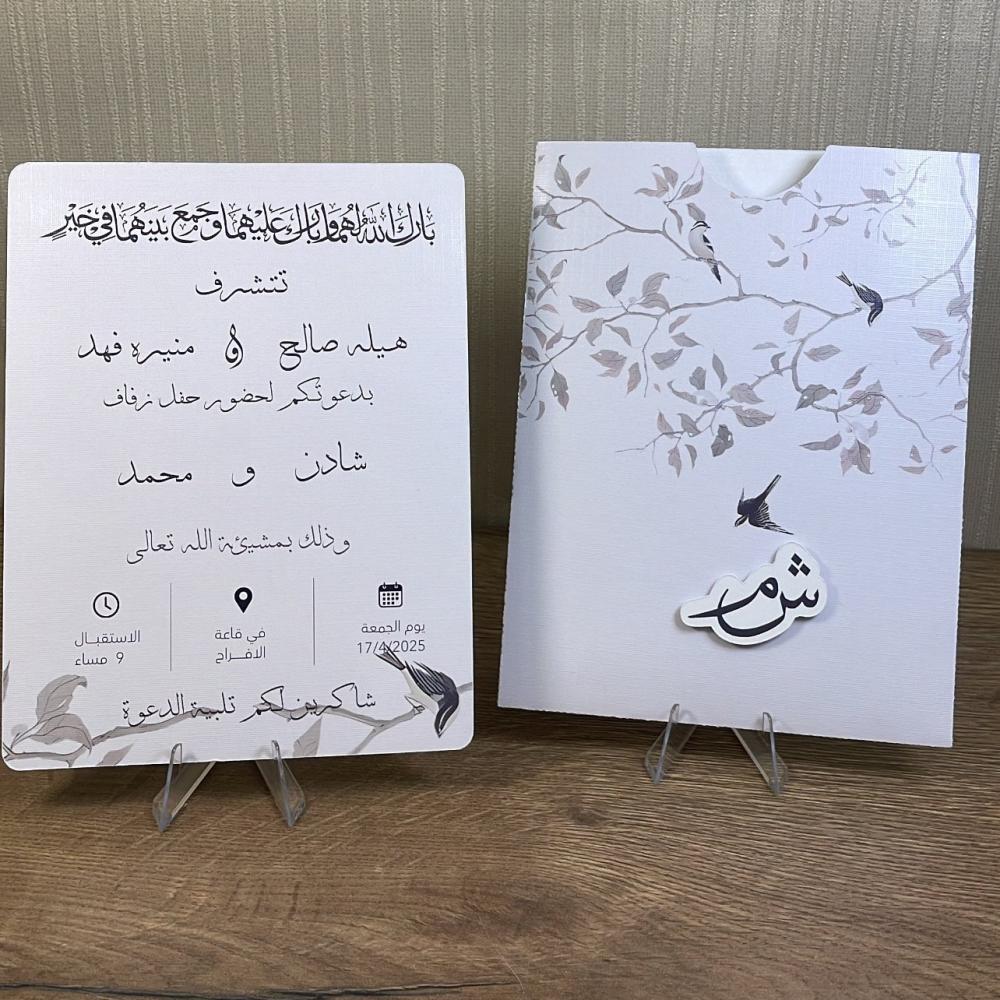 بارك الله لهما وبارك عليهما وجمع بينهما في خير
تتشرف
هيله صالح و منيره فهد
بدعوتكم لحضور حفل زفاف
شادن و محمد
وذلك بمشيئة الله تعالى
يوم الجمعة
17/4/2025
في قاعة
الافراح
الاستقبال
9 مساء
شاكرين لكم تلبية الدعوة
ش م